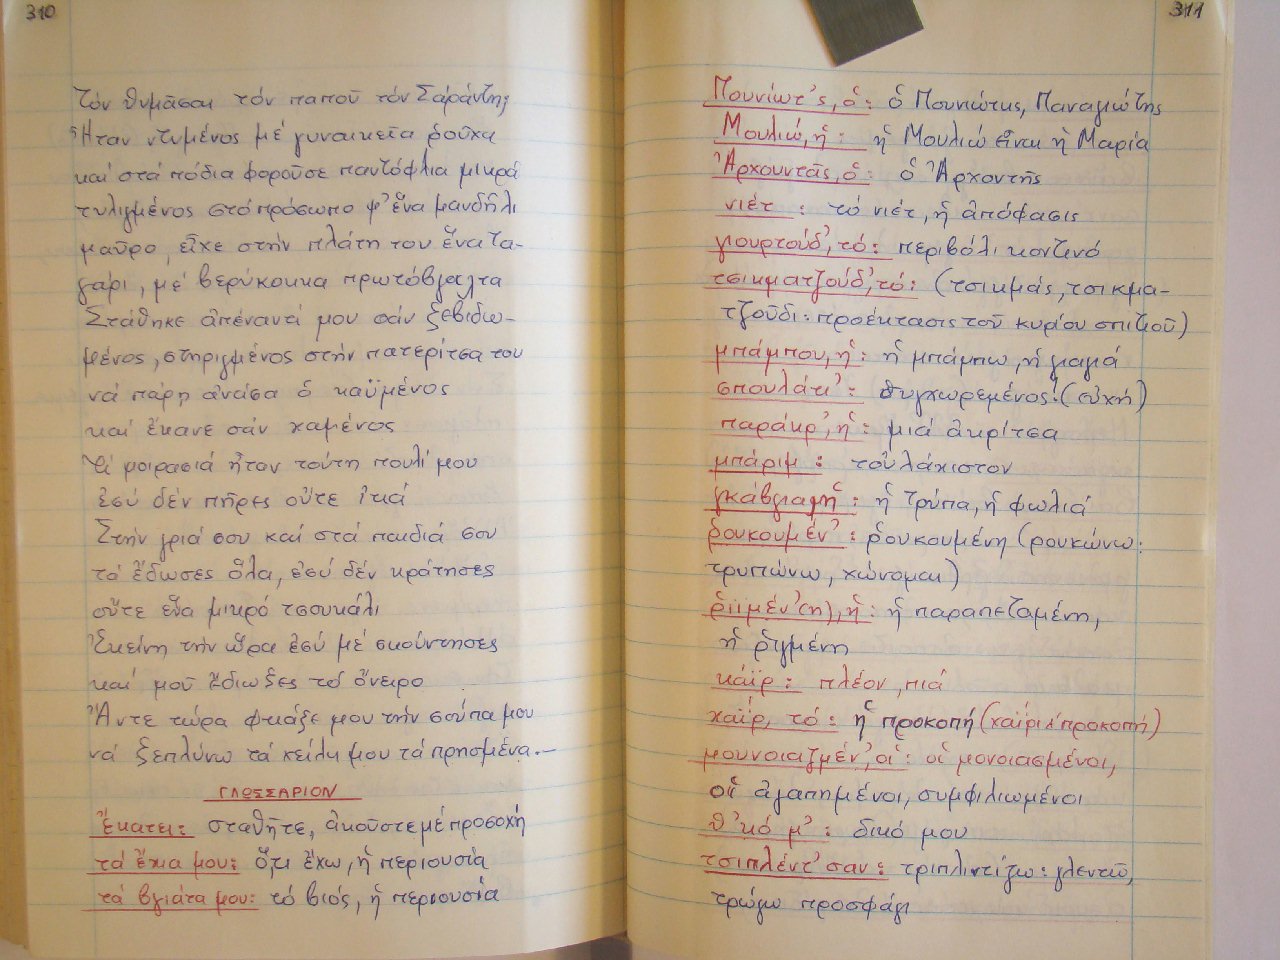 310
Τόν θυμᾶσαι τόν παποῦ τόν Σαράντη;
Ἦταν ντυμένος μέ γυναικεῖα ῥοῦχα
καί στά πόδια φοροῦσε παντόφλια μικρά
τυλιγμένος στό πρόσωπο μ' ἕνα μανδῆλι
μαῦρο, εἶχε στήν πλάτη του ἕνα τα-
γάρι, μέ βερύκοκκα πρωτόβγαλτα
Στάθηκε ἀπέναντί μου σάν ξεβιδω-
μένος, στηριγμένος στήν πατερίτσα του
νά πάρῃ ἀνάσα ὁ καϋμένος
καί ἔκανε σάν χαμένος
Τί μοιρασιά ἦταν τούτη πουλί μου
ἐσύ δέν πῆρες οὔτε
Στήν γριά σου καί στά παιδιά σου
τά ἔδωσες ὅλα, ἐσύ δέν κράτησες
οὔτε ἕνα μικρό τσουκάλι
Ἐκείνη τήν ὥρα ἐσύ μέ σκούντησες
καί μοῦ ἔδιωξες τό ὄνειρο
Ἄντε τώρα φκιάξε μου τήν σούπα μου
νά ξεπλύνω τά χείλη μου τά πρησμένα.—
ΓΛΩΣΣΑΡΙΟΝ
ἕκατει: σταθῆτε, ἀκοῦστε μέ προσοχή
τά ἔχια μου: ὅ,τι ἔχω, ἡ περιουσία
τά βγιάτα μου: τό βιός, ἡ περιουσία
311
Πουνιώτ'ς, ὁ: ὁ Πουνιώτης, Παναγιώτης
Μουλιώ, ἡ: ἡ Μουλιώ εἶναι ἡ Μαρία
Ἀρχουντᾶς, ὁ: ὁ Ἀρχοντῆς
νιέτ: τό νιέτ, ἡ ἀπόφασις
γιουρτούδ', τό: περιβόλι κοντινό
τσικματζούδ', τό: (τσικμάς, τσικμα-
τζοῦδι: προέκτασις τοῦ κυρίου σπιτιοῦ)
μπάμπου, ἡ: ἡ μπάμπω, ἡ γιαγιά
σπουλάτ': συγχωρεμένος! (εὐχή)
παράκρ', ἡ: μιά ἀκρίτσα
μπάριμ: τοὐλάχιστον
ἡ: ἡ τρύπα, ἡ φωλιά
ῥουκουμέν': ῥουκουμένη (ρουκώνω:
τρυπώνω, χώνομαι)
ῥιϊμέν'(η), ἡ: ἡ παραπεταμένη,
ἡ ῥιγμένη
κάϊρ: πλέον, πιά
χαΐρ, τό: ἡ προκοπή (χαΐρι: προκοπή)
μουνοιαζμέν', οἱ: οἱ μονοιασμένοι,
οἱ ἀγαπημένοι, συμφιλιωμένοι
θ'κό μ': δικό μου
τσιπλέντ'σαν: τριπλιντίζω: γλεντῶ,
τρώγω προσφάγι